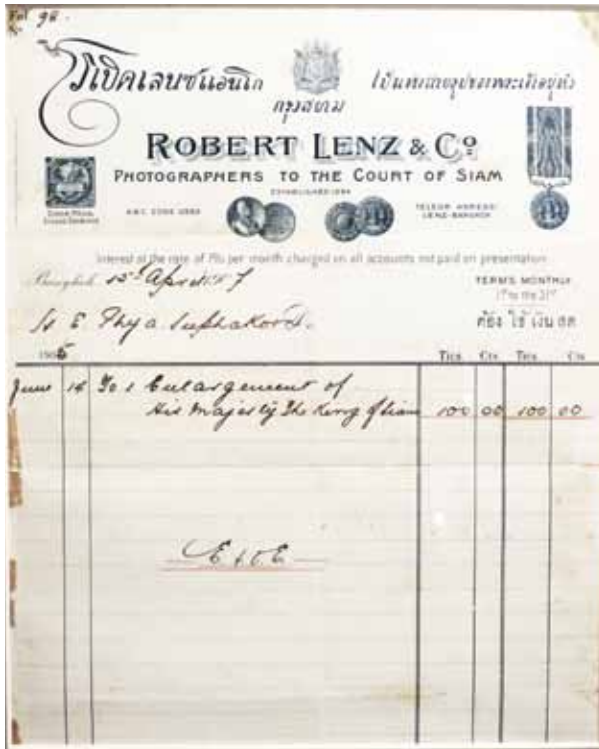 Fol 92
โรเบิตเลนซ์แอนโก
เป็นพนักงานรูปของพระเจ้าอยู่หัว
กรุงสยาม
ROBERT LENZ & Co
PHOTOGRAPHERS TO THE COURT OF SIAM
ESTABLISHED 1894
A.B.C. CODE USED
TELEGR. ADRESS:
LENZ-BANGKOK
Interest at the rate of 1% per month charged on all accounts not paid on presentation
Bangkok 15th April 1907
TERMS MONTHLY
1st to the 31st
H. E. Phya Suphakorn.
ต้อง ใช้ เงิน สด
1905
Tics. Cts. Tics. Cts
June 14 To 1 Enlargement of
His Majesty The King of Siam 100 00 100 00
E & O E